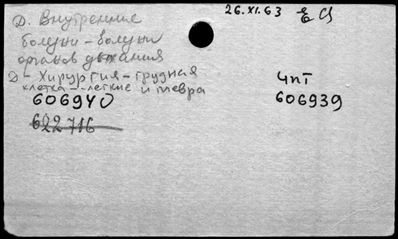 26.XI.63
Д. Внутренние
болезни - болезни
органов дыхания
Д - Хирургия - грудная
клетка - легкие и плевра
ЧПТ
606940
606939
622716